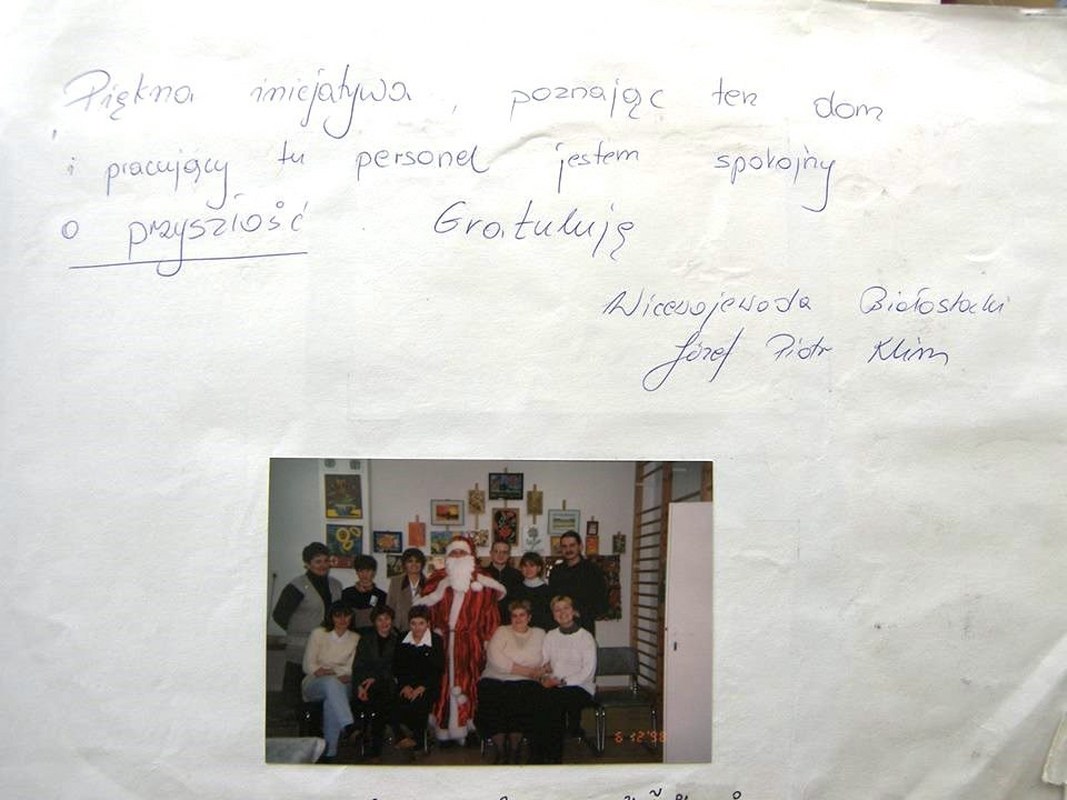 Piękna inicjatywa, poznając ten dom
i pracujący tu personel jestem spokojny
o przyszłość. Gratuluję
Wicewojewoda Białostocki
Józef Piotr Klim
6 12 '98